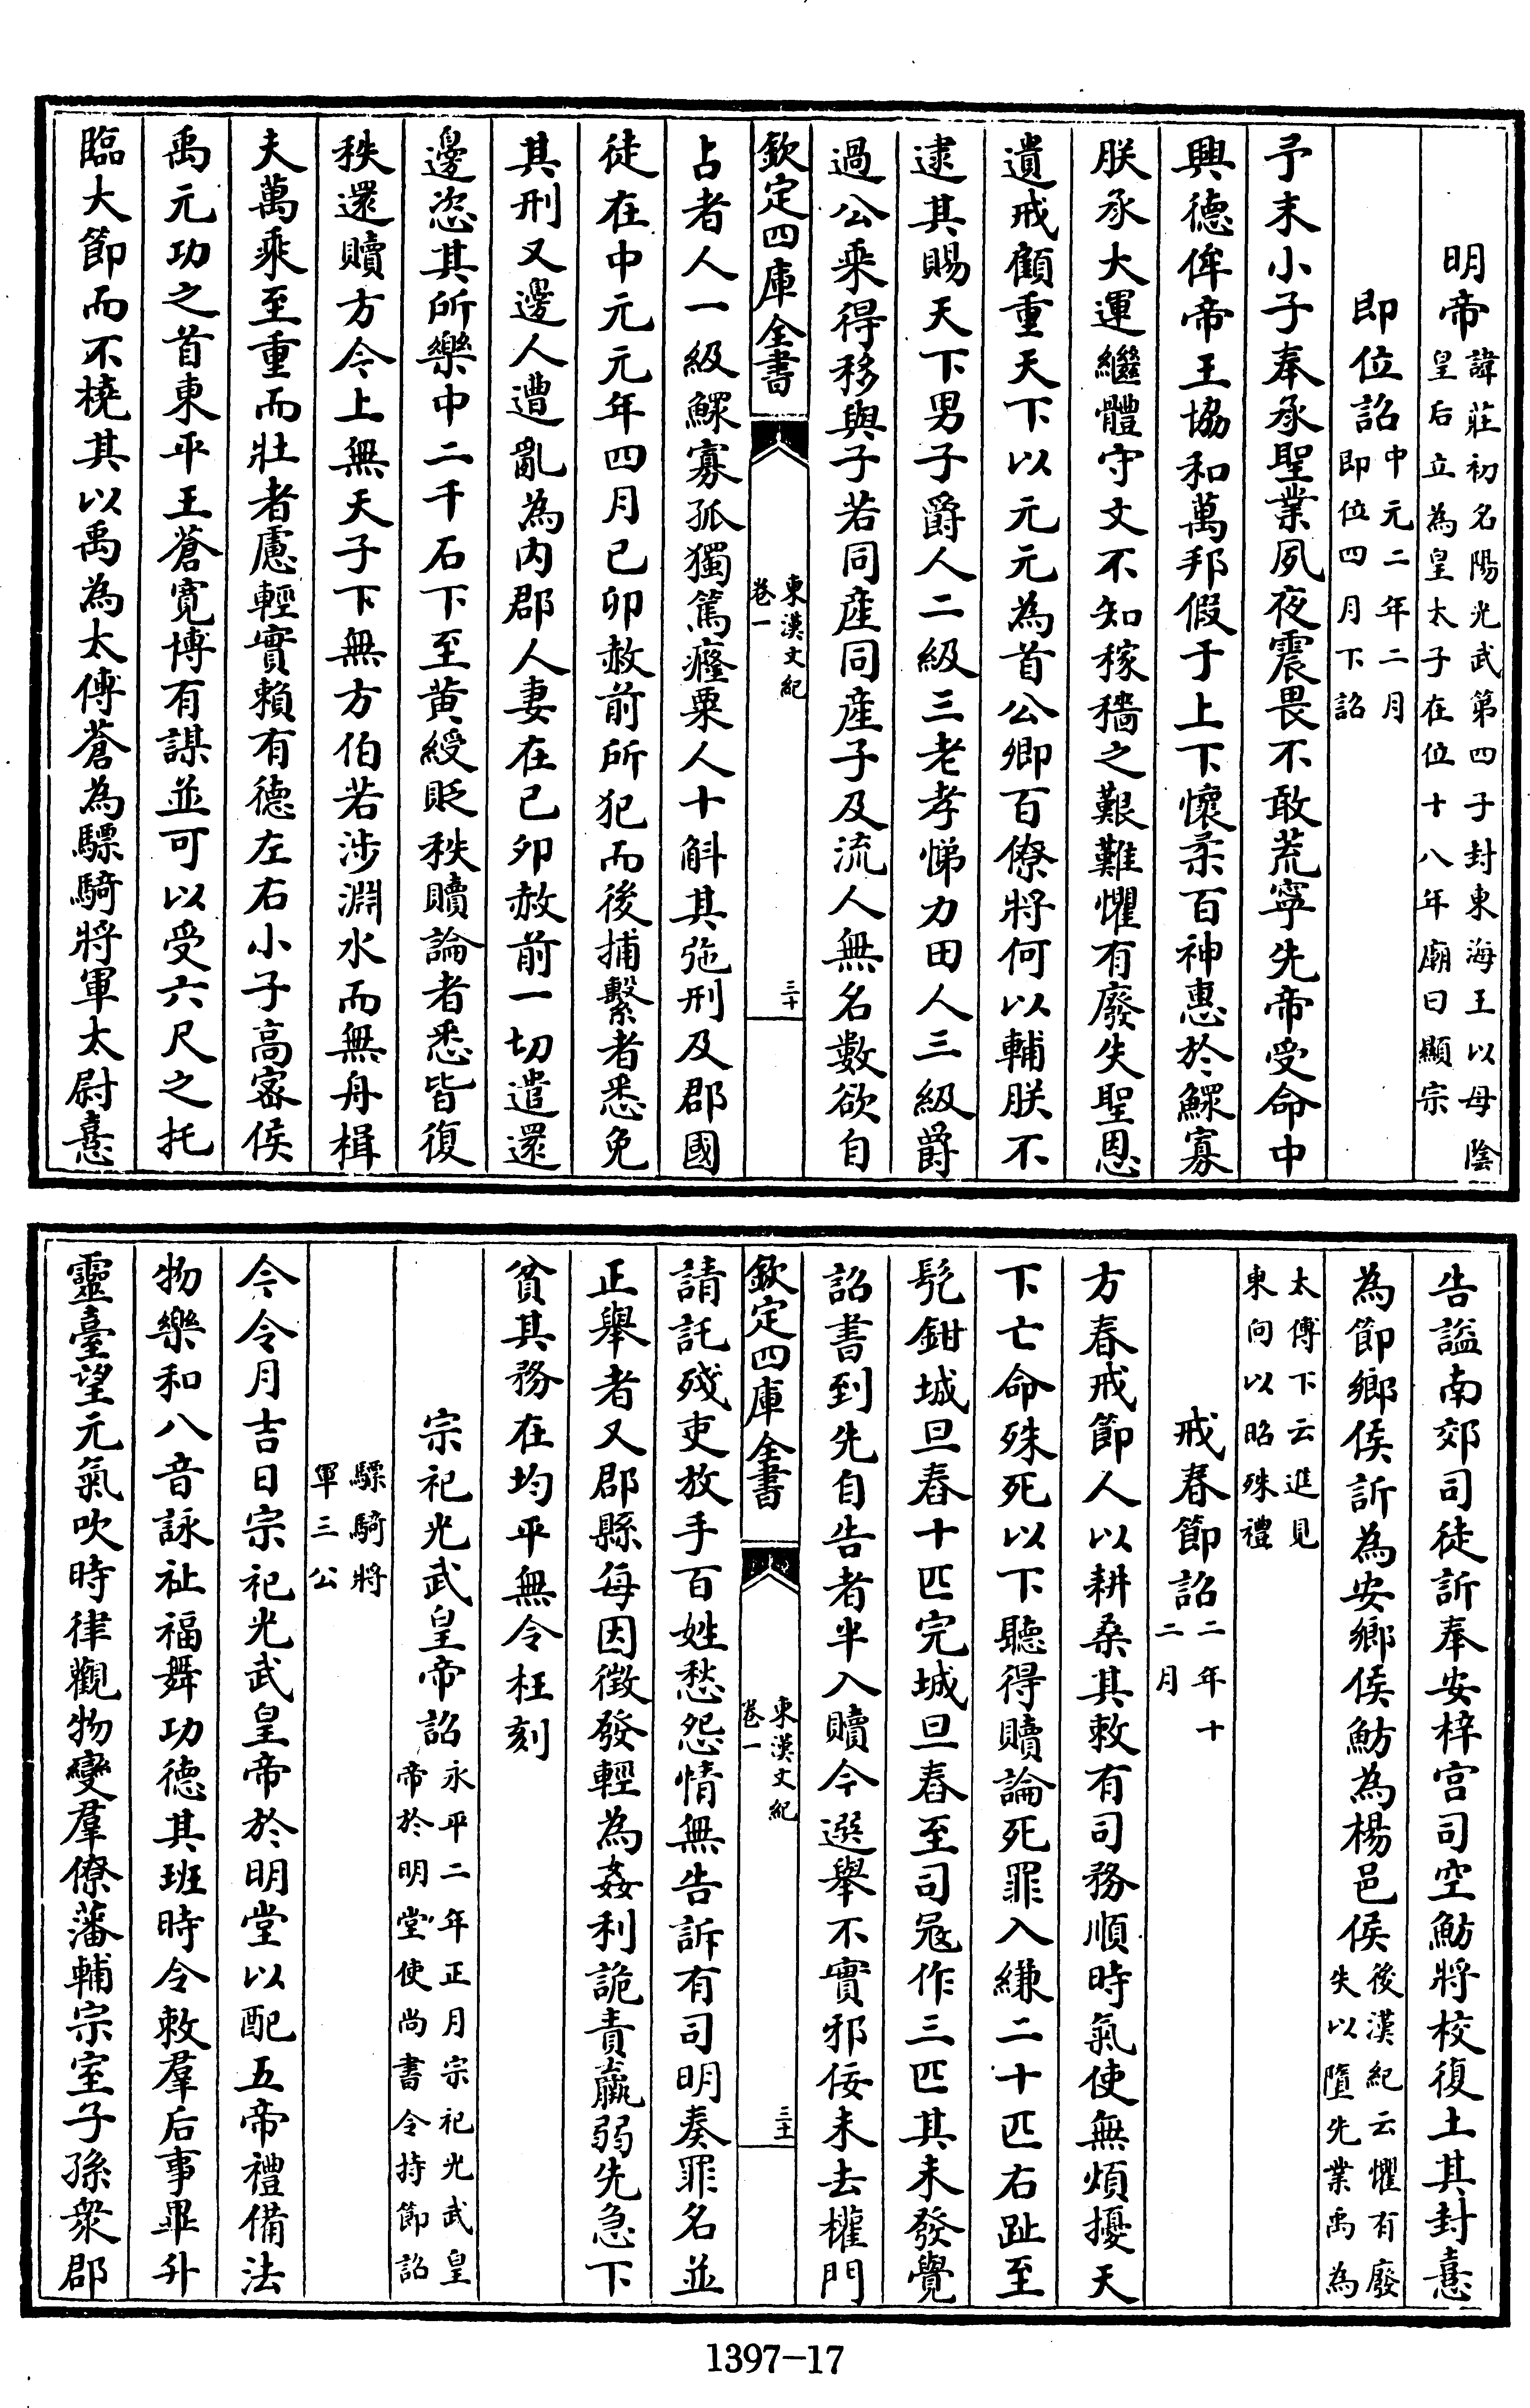 明帝諱莊初名陽光武第四子封東海王以母陰
皇后立為皇太子在位十八年廟曰顯宗
即位詔中元二年二月
即位四月下詔
予末小子奉承聖業夙夜震畏不敢荒寧先帝受命中
興德侔帝王協和萬邦假于上下懷柔百神惠於鰥寡
朕承大運繼體守文不知稼穡之艱難懼有廢失聖恩
遺戒顧重天下以元元為首公卿百僚將何以輔朕不
逮其賜天下男子爵人二級三老孝悌力田人三級爵
過公乘得移與子若同産同産子及流人無名數欲自
欽定四庫全書
東漢文紀
卷一
三十
占者人一級鰥寡孤獨篤癃粟人十斛其弛刑及郡國
徒在中元元年四月已卯赦前所犯而後捕繫者悉免
其刑又邊人遭亂為内郡人妻在已卯赦前一切遣還
邊恣其所樂中二千石下至黄綬貶秩贖論者悉皆復
秩還贖方今上無天子下無方伯若涉淵水而無舟楫
夫萬乘至重而壯者慮輕實賴有德左右小子高密侯
禹元功之首東平王蒼寛博有謀並可以受六尺之托
臨大節而不橈其以禹為太傅蒼為驃騎將軍太尉憙
告謚南郊司徒訢奉安梓宫司空魴將校復土其封憙
為節鄉侯訢為安鄉侯魴為楊邑侯後漢紀云懼有廢
失以墮先業禹為
太傅下云進見
東向以昭殊禮
戒春節詔二年十
二月
方春戒節人以耕桑其敕有司務順時氣使無煩擾天
下亡命殊死以下聽得贖論死罪入縑二十匹右趾至
髡鉗城旦舂十匹完城旦舂至司冦作三匹其未發覺
詔書到先自告者半入贖今選舉不實邪佞未去權門
欽定四庫全書
東漢文紀
卷一
三十一
請託殘吏放手百姓愁怨情無告訴有司明奏罪名並
正舉者又郡縣每因徴發輕為姦利詭責羸弱先急下
貧其務在均平無令枉刻
宗祀光武皇帝詔永平二年正月宗祀光武皇
帝於明堂使尚書令持節詔
驃騎將
軍三公
今令月吉日宗祀光武皇帝於明堂以配五帝禮備法
物樂和八音詠祉福舞功德其班時令敕羣后事畢升
靈臺望元氣吹時律觀物變羣僚藩輔宗室子孫衆郡
1397-17